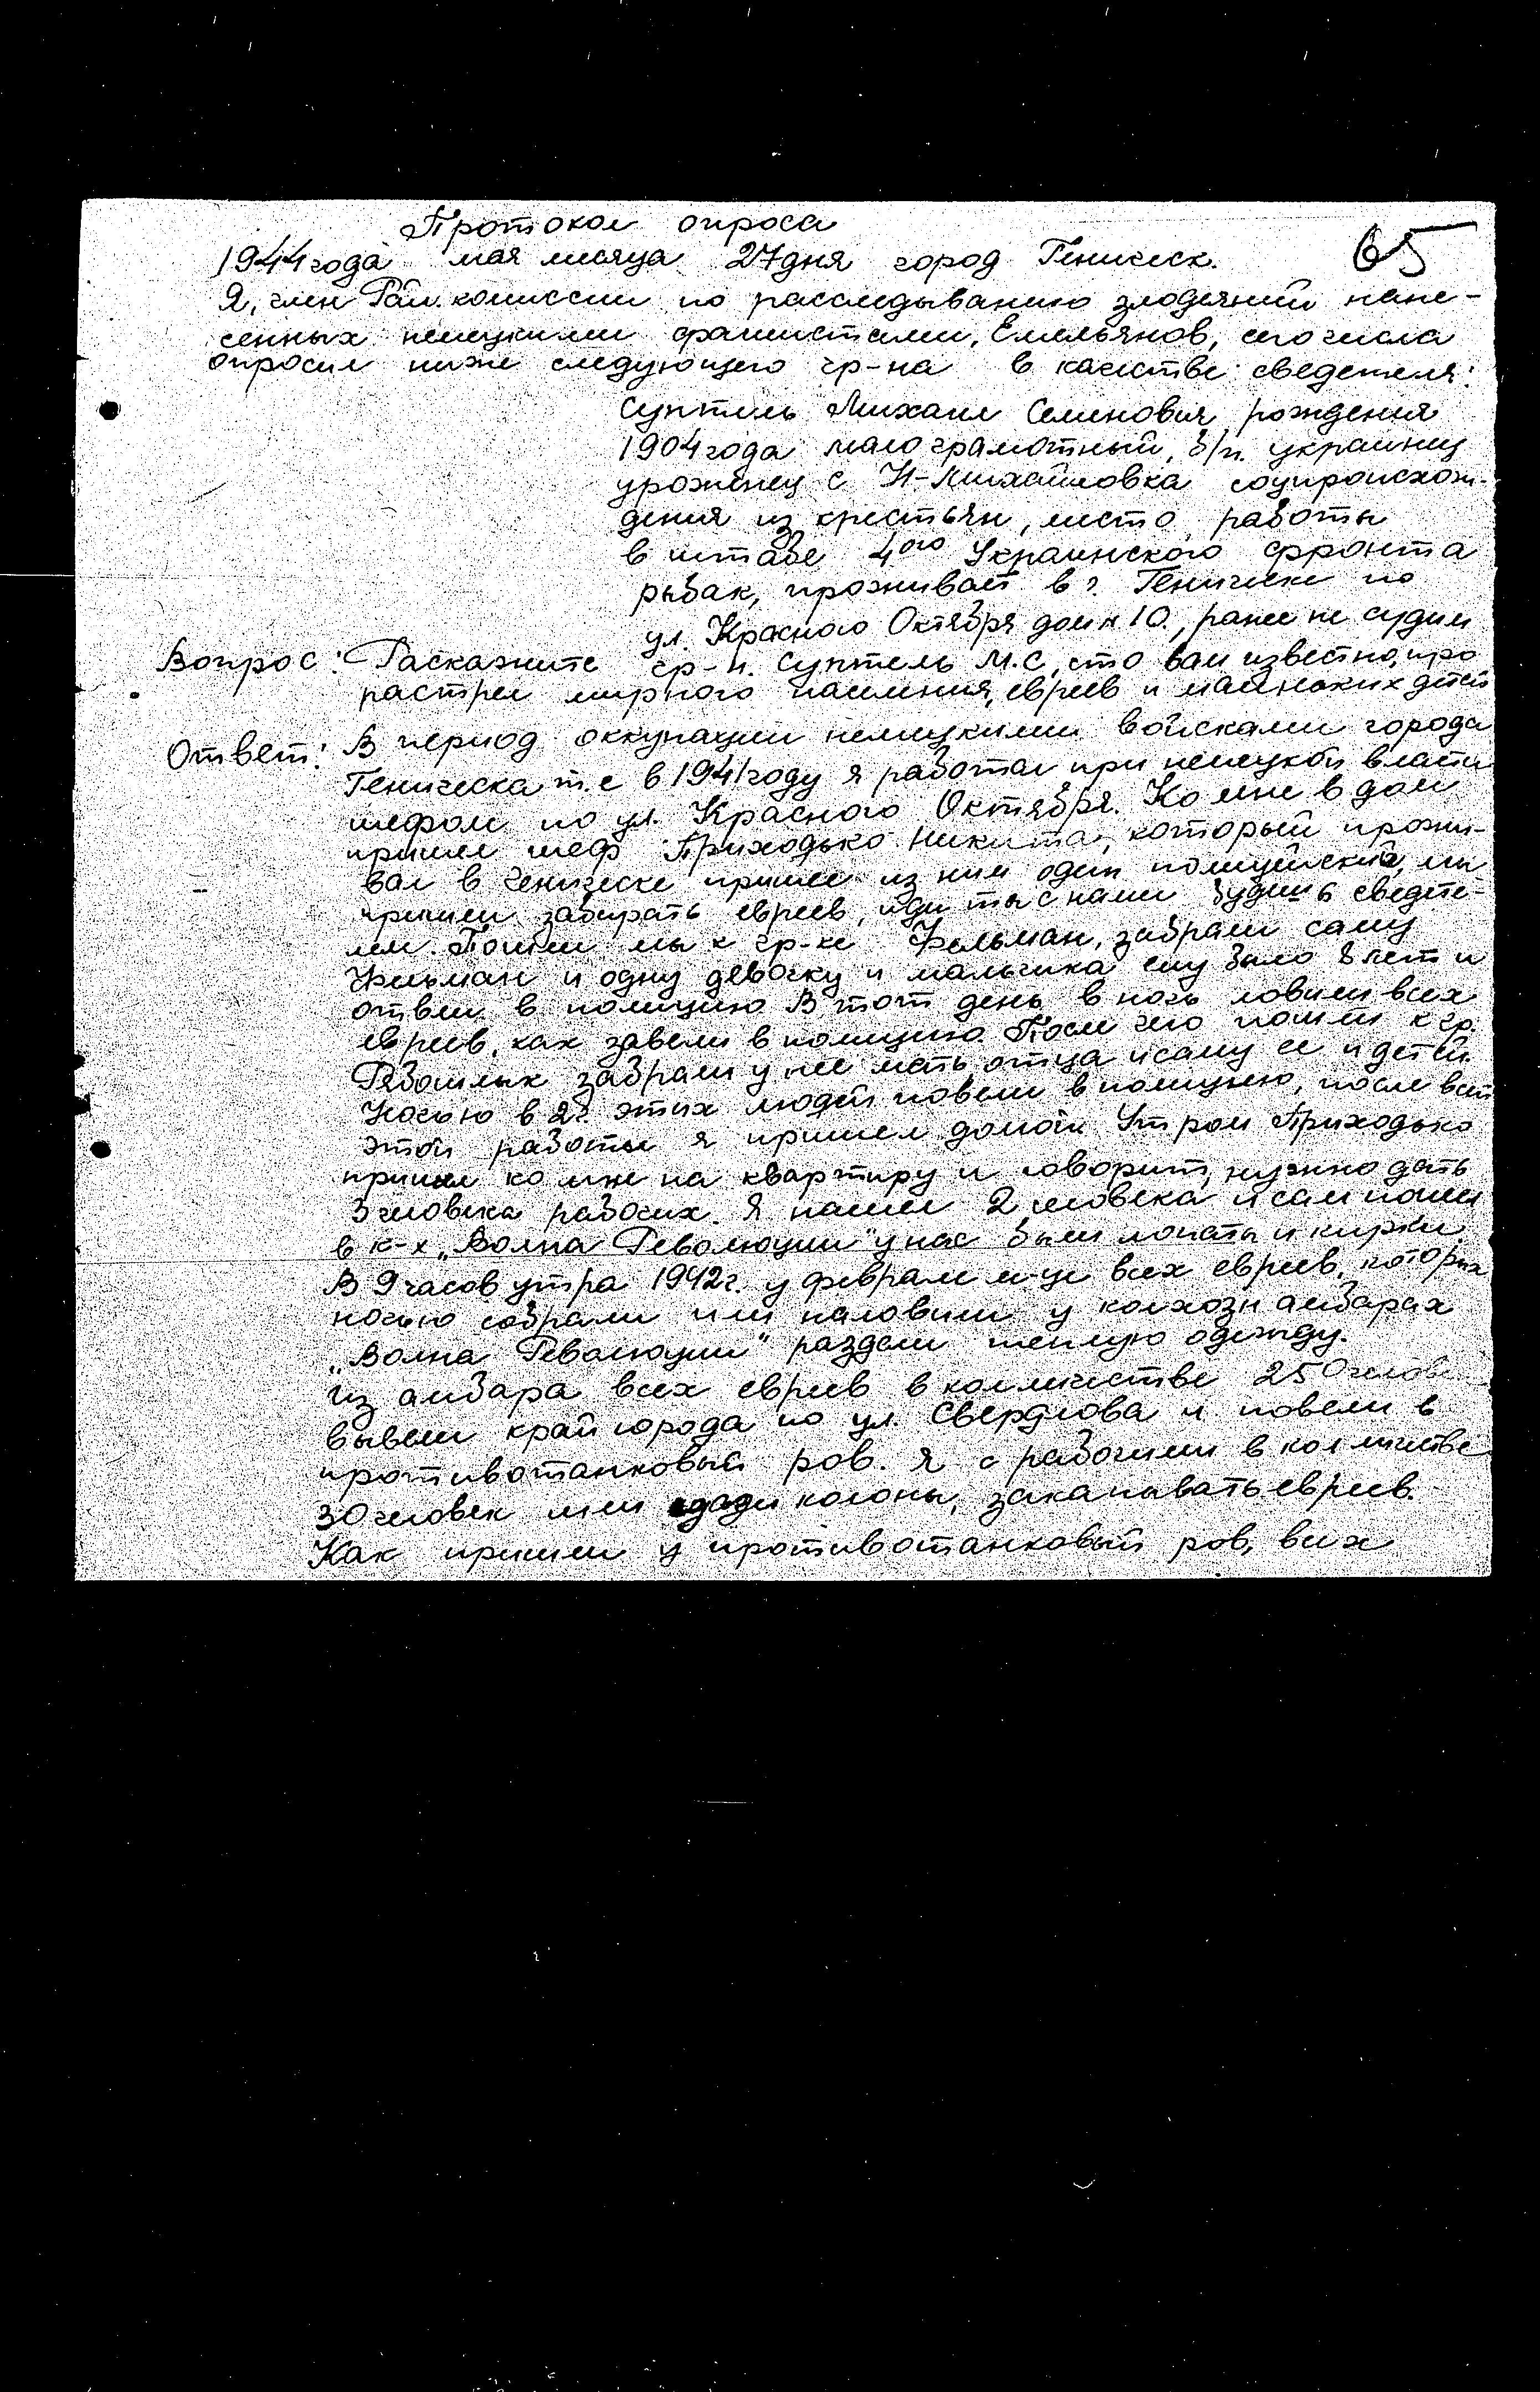 Протокол опроса
65
1944 года мая месяца 27 дня город Геническ.
Я, член Рай. комиссии по расследыванию злодеяний нане-
сенных немецкими фашистами, Емельянов, сего числа
опросил ниже следующего гр-на в качестве сведетеля:
Суптель Михаил Семенович рождения
1904 года малограмотный, б/п. украинец
уроженец с Н-Михайловка соцпроисхож-
дения из крестьян, место работы
в штабе 4ого Украинского фронта
рыбак, проживает в г. Геническе по
ул. Красного Октября дом N 10., ранее не судим
Вопрос: Раскажите гр-н. Суптель М.С, что вам известно, про
растрел мирного населения, евреев и маленьких детей
Ответ: В период оккупации немецкими войсками города
Геническа т.е в 1941 году я работал при немецкой власти
шефом по ул. Красного Октября. Ко мне в дом
пришел шеф Приходько Никита, который прожи-
вал в Геническе пришел из ним один полицейский, мы
пришли забирать евреев, иди ты с нами будишь сведете-
лем. Пошли мы к гр-ке Фельман, забрали саму
Фельман и одну девочку и мальчика ему было 8 лет и
отвели в полицию В тот день в ночь ловили всех
евреев, как завели в полицию. После чего пошли к гр.
забрали у нее мать, отца и саму ее и детей.
Ночью в 2 г. этих людей повели в полицию, после всей
этой работы я пришел домой. Утром Приходько
пришел ко мне на квартиру и говорит, нужно дать
3 человека рабочих. Я нашел 2 человека и сам пошел
в к-х „Волна Революции" у нас были лопаты и кирки.
В 9 часов утра 1942 г. у феврале м-це всех евреев, которых
ночью собрали или наловили у колхозн амбарах
„Волна Революции" раздели теплую одежду.
Из амбара всех евреев в колличестве 250 челове
вывели край города по ул. Свердлова и повели в
противотанковый ров. Я с рабочими в колличестве
30 человек шли сзади колоны, закапывать евреев.
Как пришли у противотанковый ров, всих